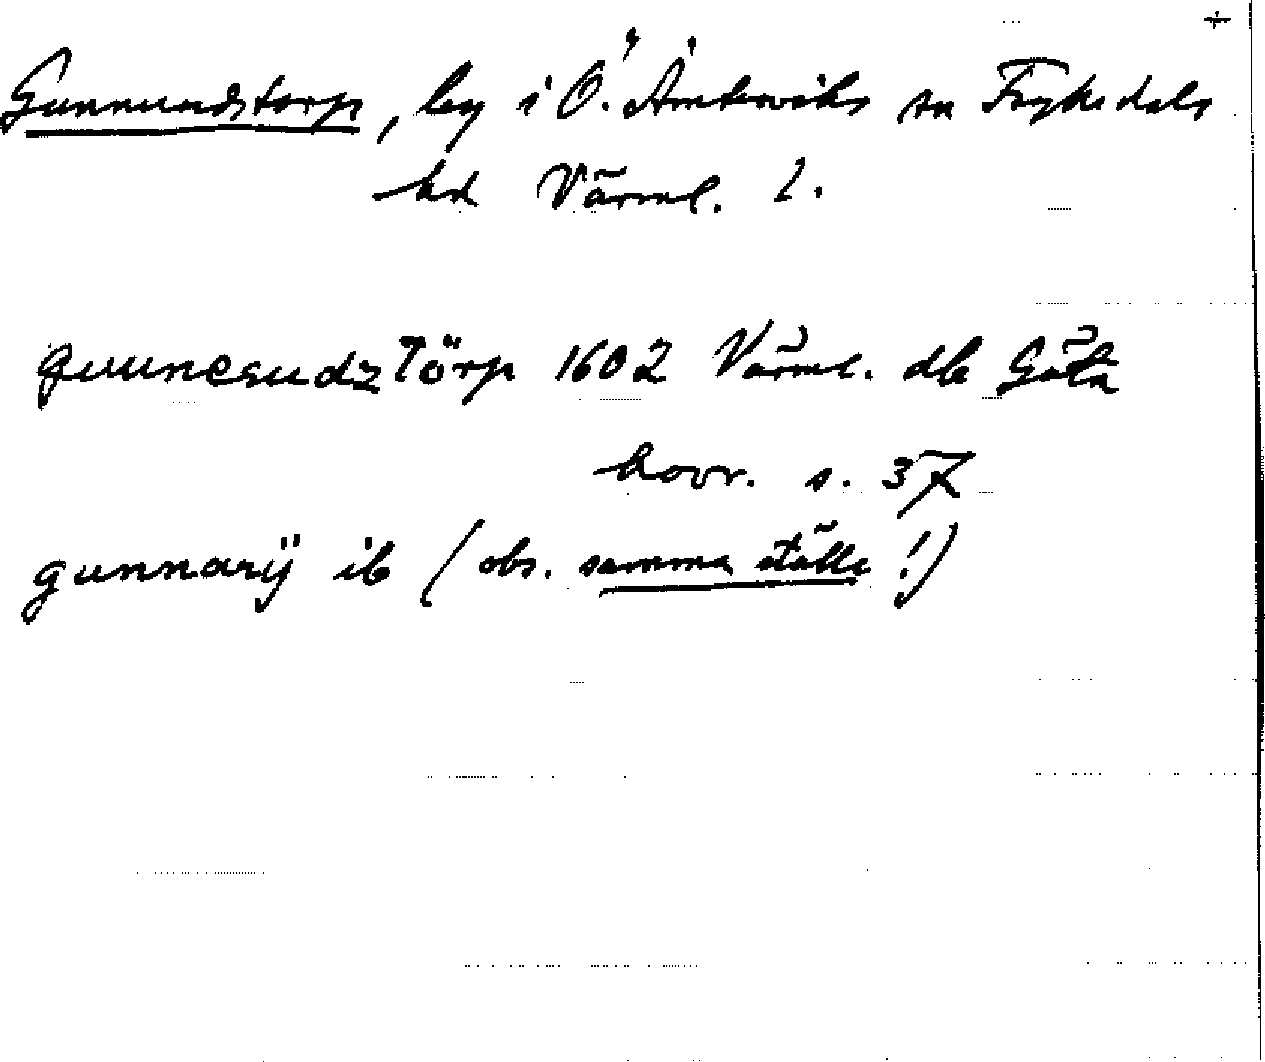 +
Gunnundstorp, by i Ö. Ämterviks sn Fryksdals
hd Värml. l.
gunnesudztörp 1602 Värml. db Göta
hovr. s. 37
gunnarÿ ib (obs. samma ställe!)